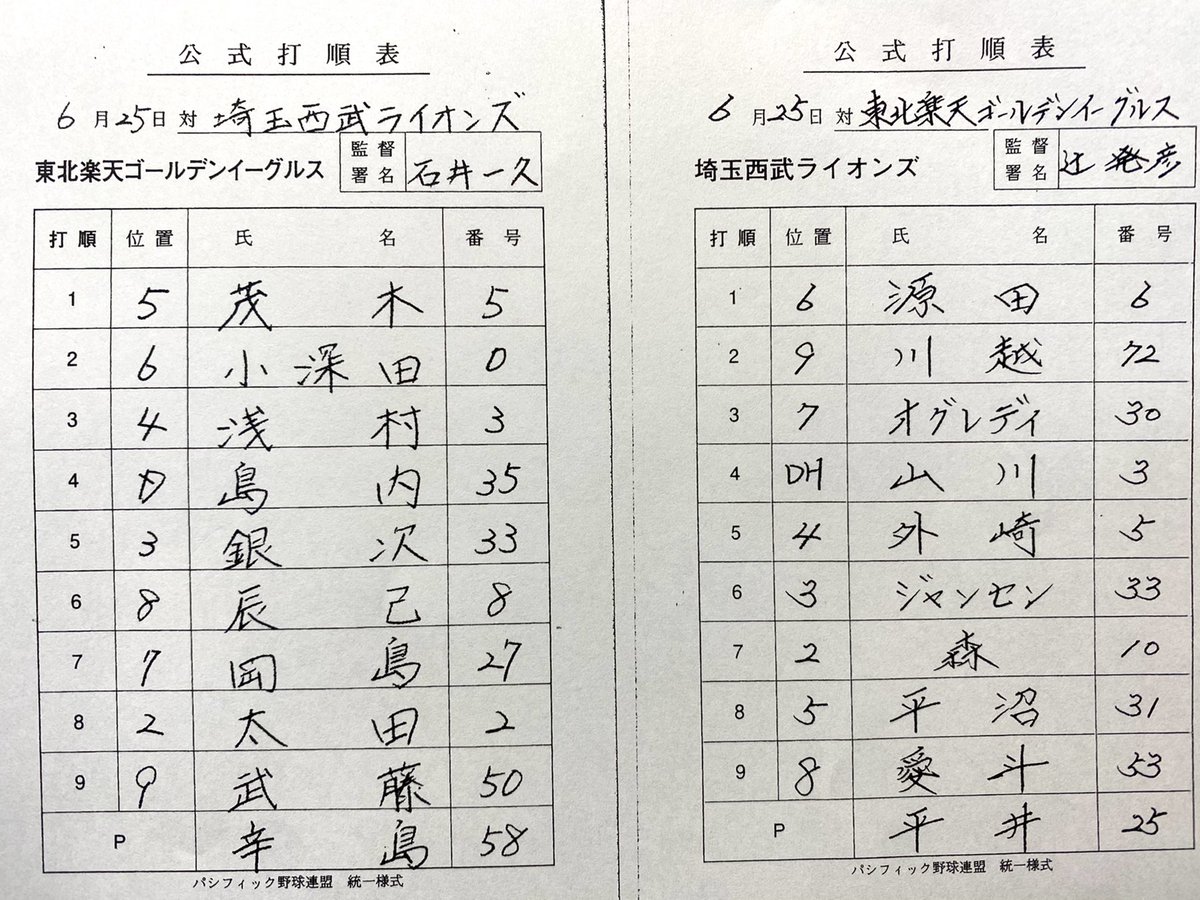 公式打順表
6月25日対 埼玉西武ライオンズ
東北楽天ゴールデンイーグルス 監督署名 石井一久
打順 位置 氏名 番号
1 5 茂木 5
2 6 小深田 0
3 4 浅村 3
4 D 島内 35
5 3 銀次 33
6 8 辰己 8
7 7 岡島 27
8 2 太田 2
9 9 武藤 50
P 辛島 58
パシフィック野球連盟 統一様式
公式打順表
6月25日対 東北楽天ゴールデンイーグルス
埼玉西武ライオンズ 監督署名 辻発彦
打順 位置 氏名 番号
1 6 源田 6
2 9 川越 72
3 7 オグレディ 30
4 DH 山川 3
5 4 外崎 5
6 3 ジャンセン 33
7 2 森 10
8 5 平沼 31
9 8 愛斗 53
P 平井 25
パシフィック野球連盟 統一様式